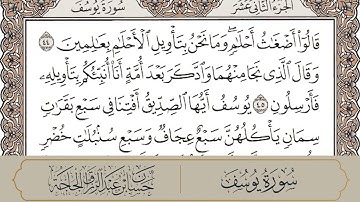 الجزء الثاني عشر
سورة يوسف
قَالُوٓاْ أَضۡغَٰثُ أَحۡلَٰمٖۖ وَمَا نَحۡنُ بِتَأۡوِيلِ ٱلۡأَحۡلَٰمِ بِعَٰلِمِينَ ٤٤
وَقَالَ ٱلَّذِي نَجَا مِنۡهُمَا وَٱدَّكَرَ بَعۡدَ أُمَّةٍ أَنَا۠ أُنَبِّئُكُم بِتَأۡوِيلِهِۦ
فَأَرۡسِلُونِ ٤٥ يُوسُفُ أَيُّهَا ٱلصِّدِّيقُ أَفۡتِنَا فِي سَبۡعِ بَقَرَٰتٖ
سِمَانٖ يَأۡكُلُهُنَّ سَبۡعٌ عِجَافٞ وَسَبۡعِ سُنۢبُلَٰتٍ خُضۡرٖ
سورة يوسف